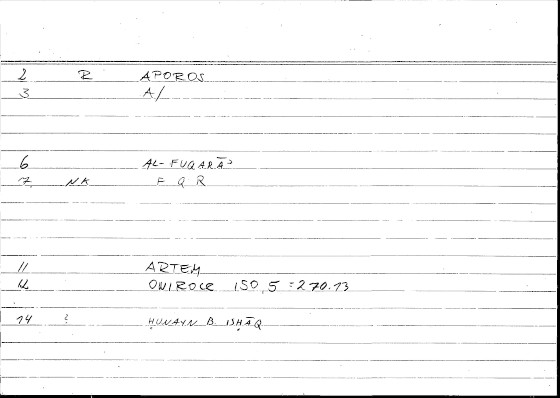 2 R APOROS
3 A/
6 AL-FUQARĀʾ
7 NK F Q R
11 ARTEM
12 ONIROCR 150,5 = 270.13
14 ? ḤUNAYN B. ISḤĀQ